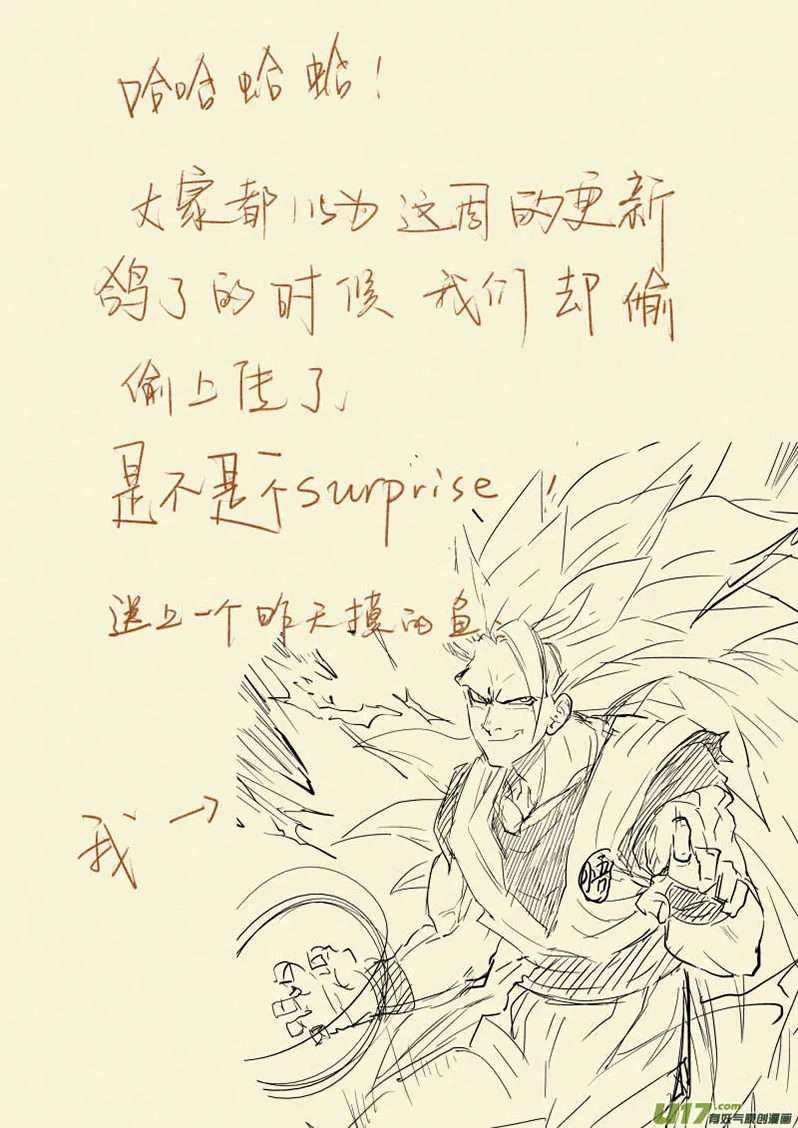 哈哈哈哈!
大家都以为这周的更新
鸽了的时候 我们却偷
偷上传了
是不是个surprise!
送上一个昨天摸的鱼、
我→
悟
U17.com
有妖气原创漫画